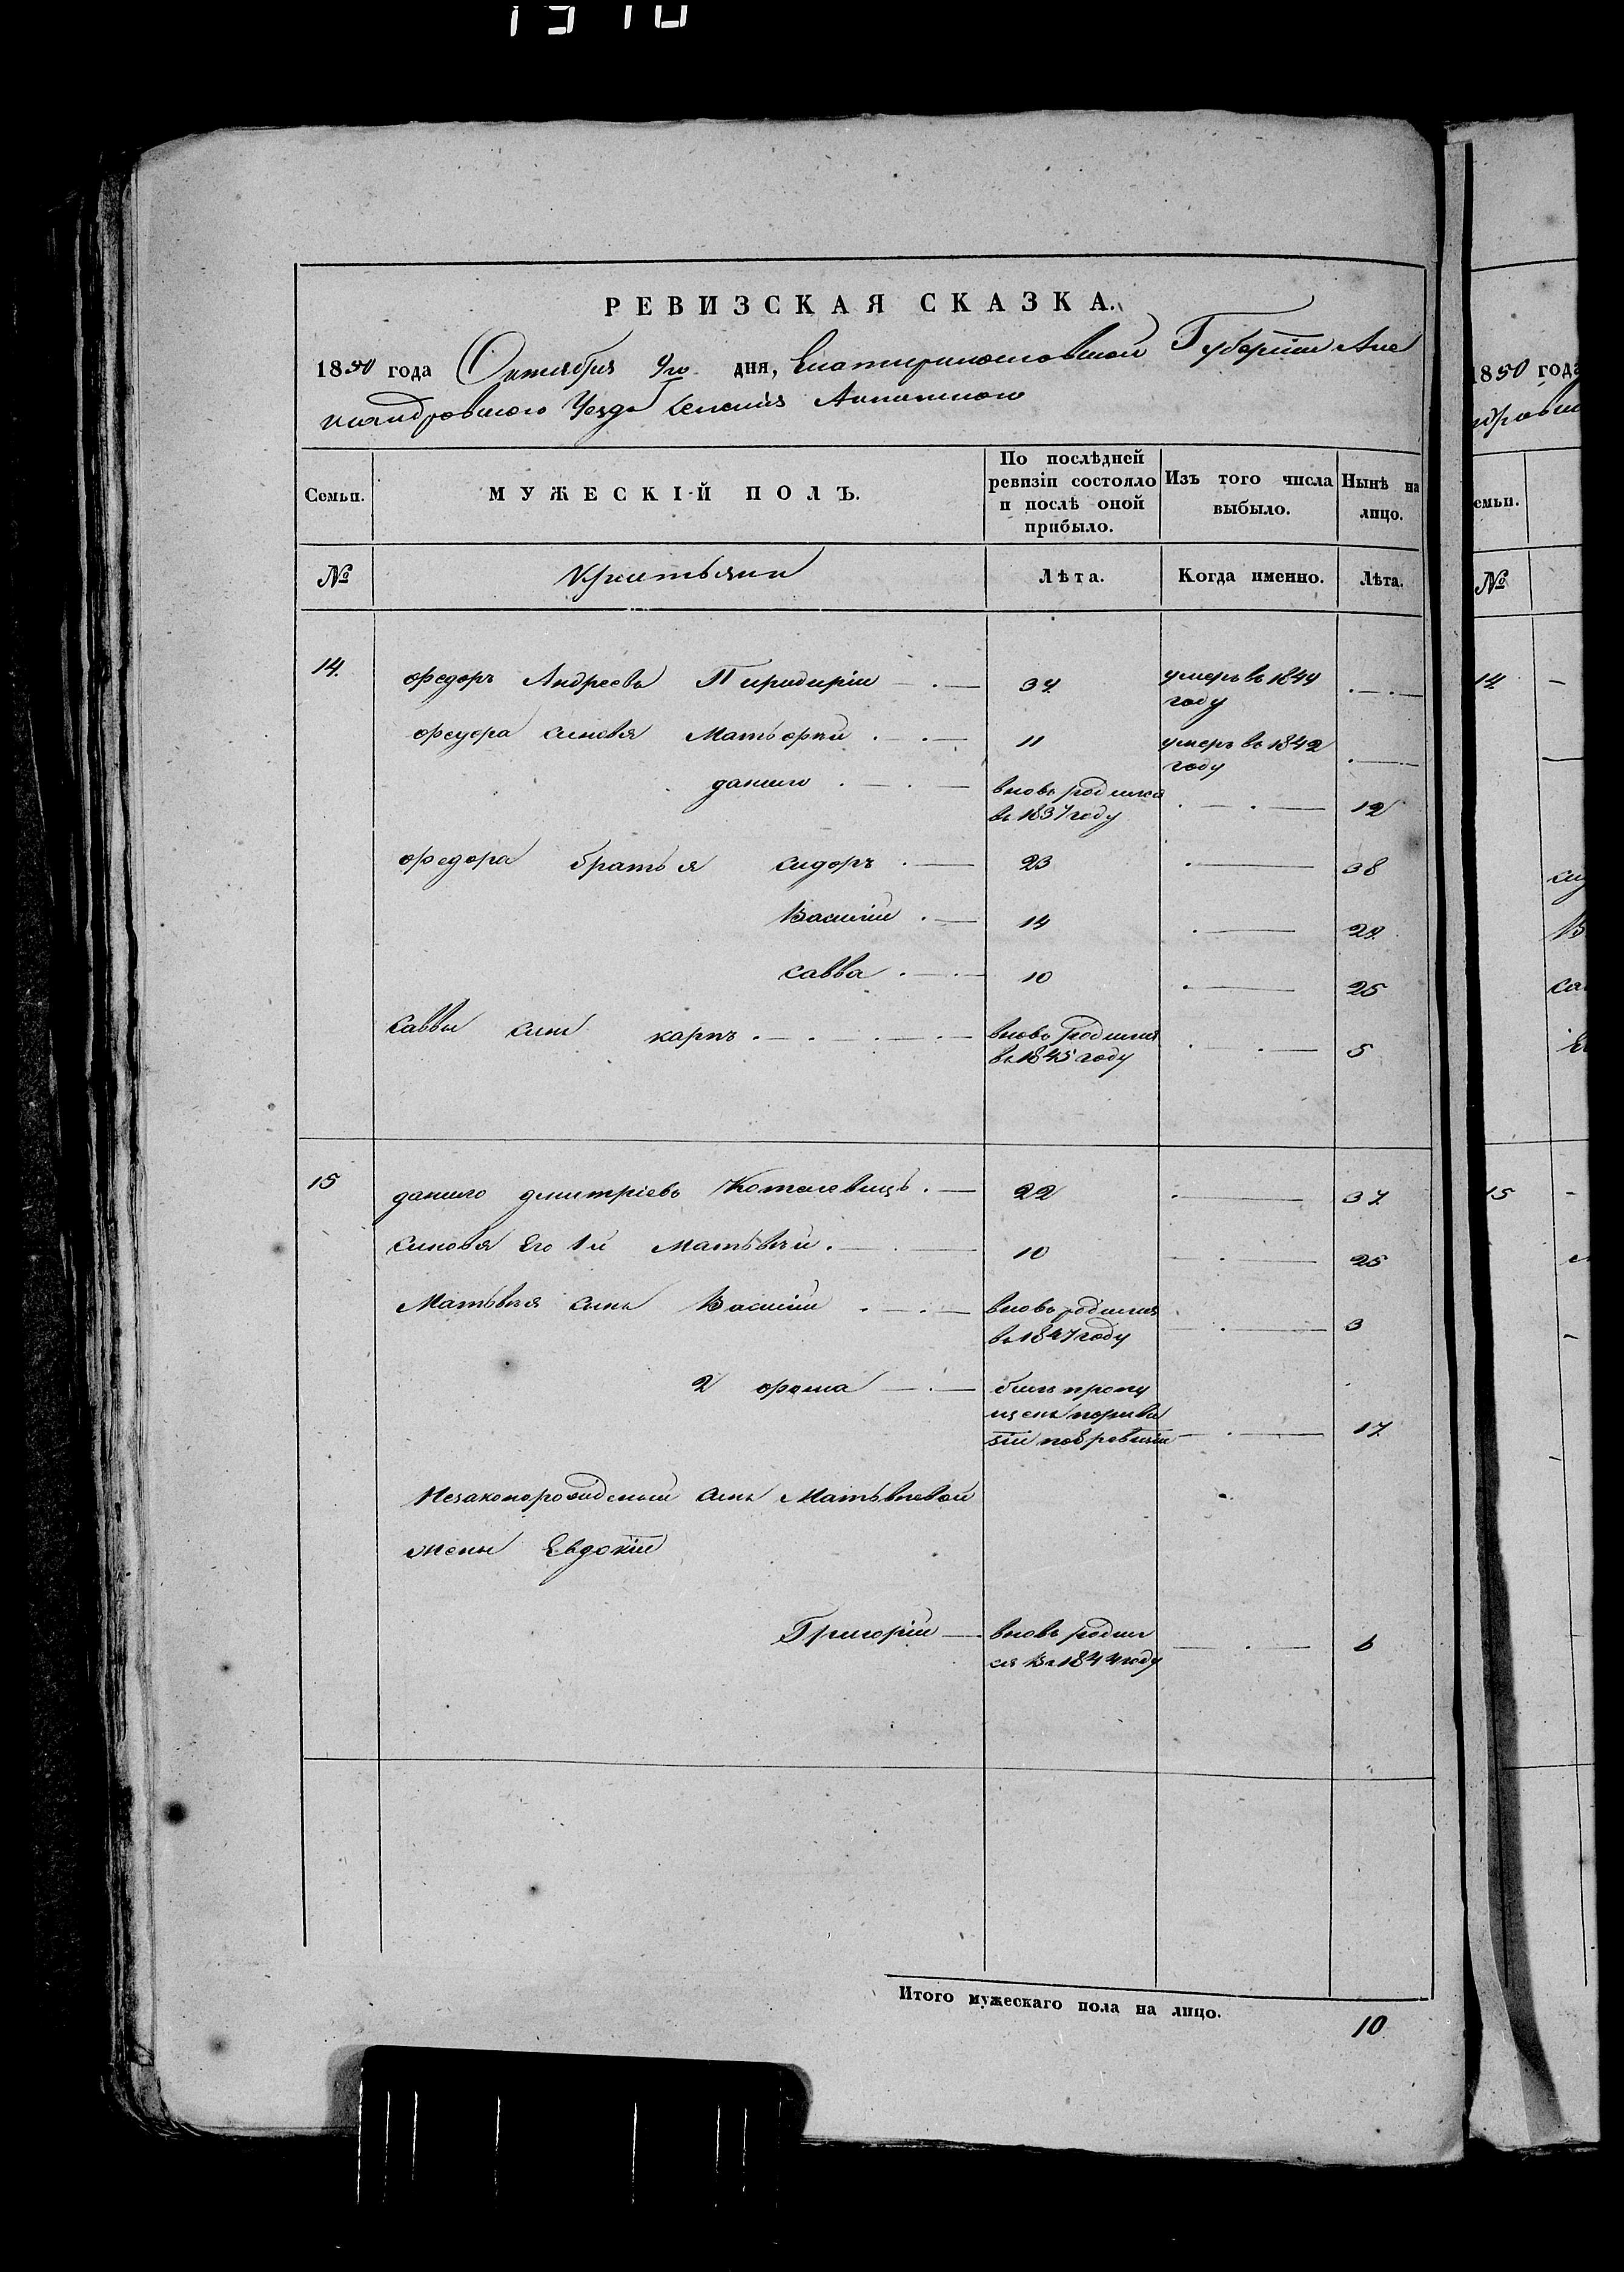 РЕВИЗСКАЯ СКАЗКА.
1850 года Октября 9го дня, Екатеринославской Губернии Але
ксандровского Уезда Селения
Семьи.
МУЖЕСКІЙ ПОЛЪ.
По послѣдней ревизіи состояло и послѣ оной прибыло.
Изъ того числа выбыло.
Нынѣ на лицо.
№
Крестьяни
Лѣта.
Когда именно.
Лѣта.
14. Федоръ Андреевъ 37. умеръ въ 1849 году
Федора синовя 11 умеръ въ 1842 году
данило вновь родился въ 1837 году 12
Федора братья сидоръ 23 38
Василій 14 29.
савва 10 25
Саввы синъ карпъ вновь родился въ 1845 году 5
15 данило дмитріевъ 22 37.
Синовя Его 1й Матьвѣй 10 25
Матьвѣя синъ Василій вновь родился въ 1847 году 3
2 фома билъ пропу
щенъ по
зіи 17.
Незаконорожденый синъ Матьвѣевой
жены Евдокіи
Григорій вновь родил
ся въ 1844 году 6
Итого мужескаго пола на лицо. 10
1850 года
емьи.
№
14.
15